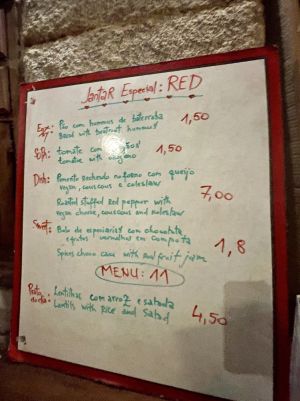 Jantar Especial: RED
Pão com hummus de beterraba 1,50
Bread with beetroot hummus
tomate com 1,50
tomatoe with oregano
Dish: Pimento Recheado no forno com queijo
vegan, couscous e coleslaw 7,00
Roasted stuffed Red pepper with
vegan cheese, couscous and coleslaw
Sweet: Bolo de especiarias com chocolate
e frutos vermelhos em compota 1,8
Spices choco cake with red fruit jam
MENU: 11
Prato do dia: Lentilhas com arroz e salada
Lentils with Rice and Salad 4,50